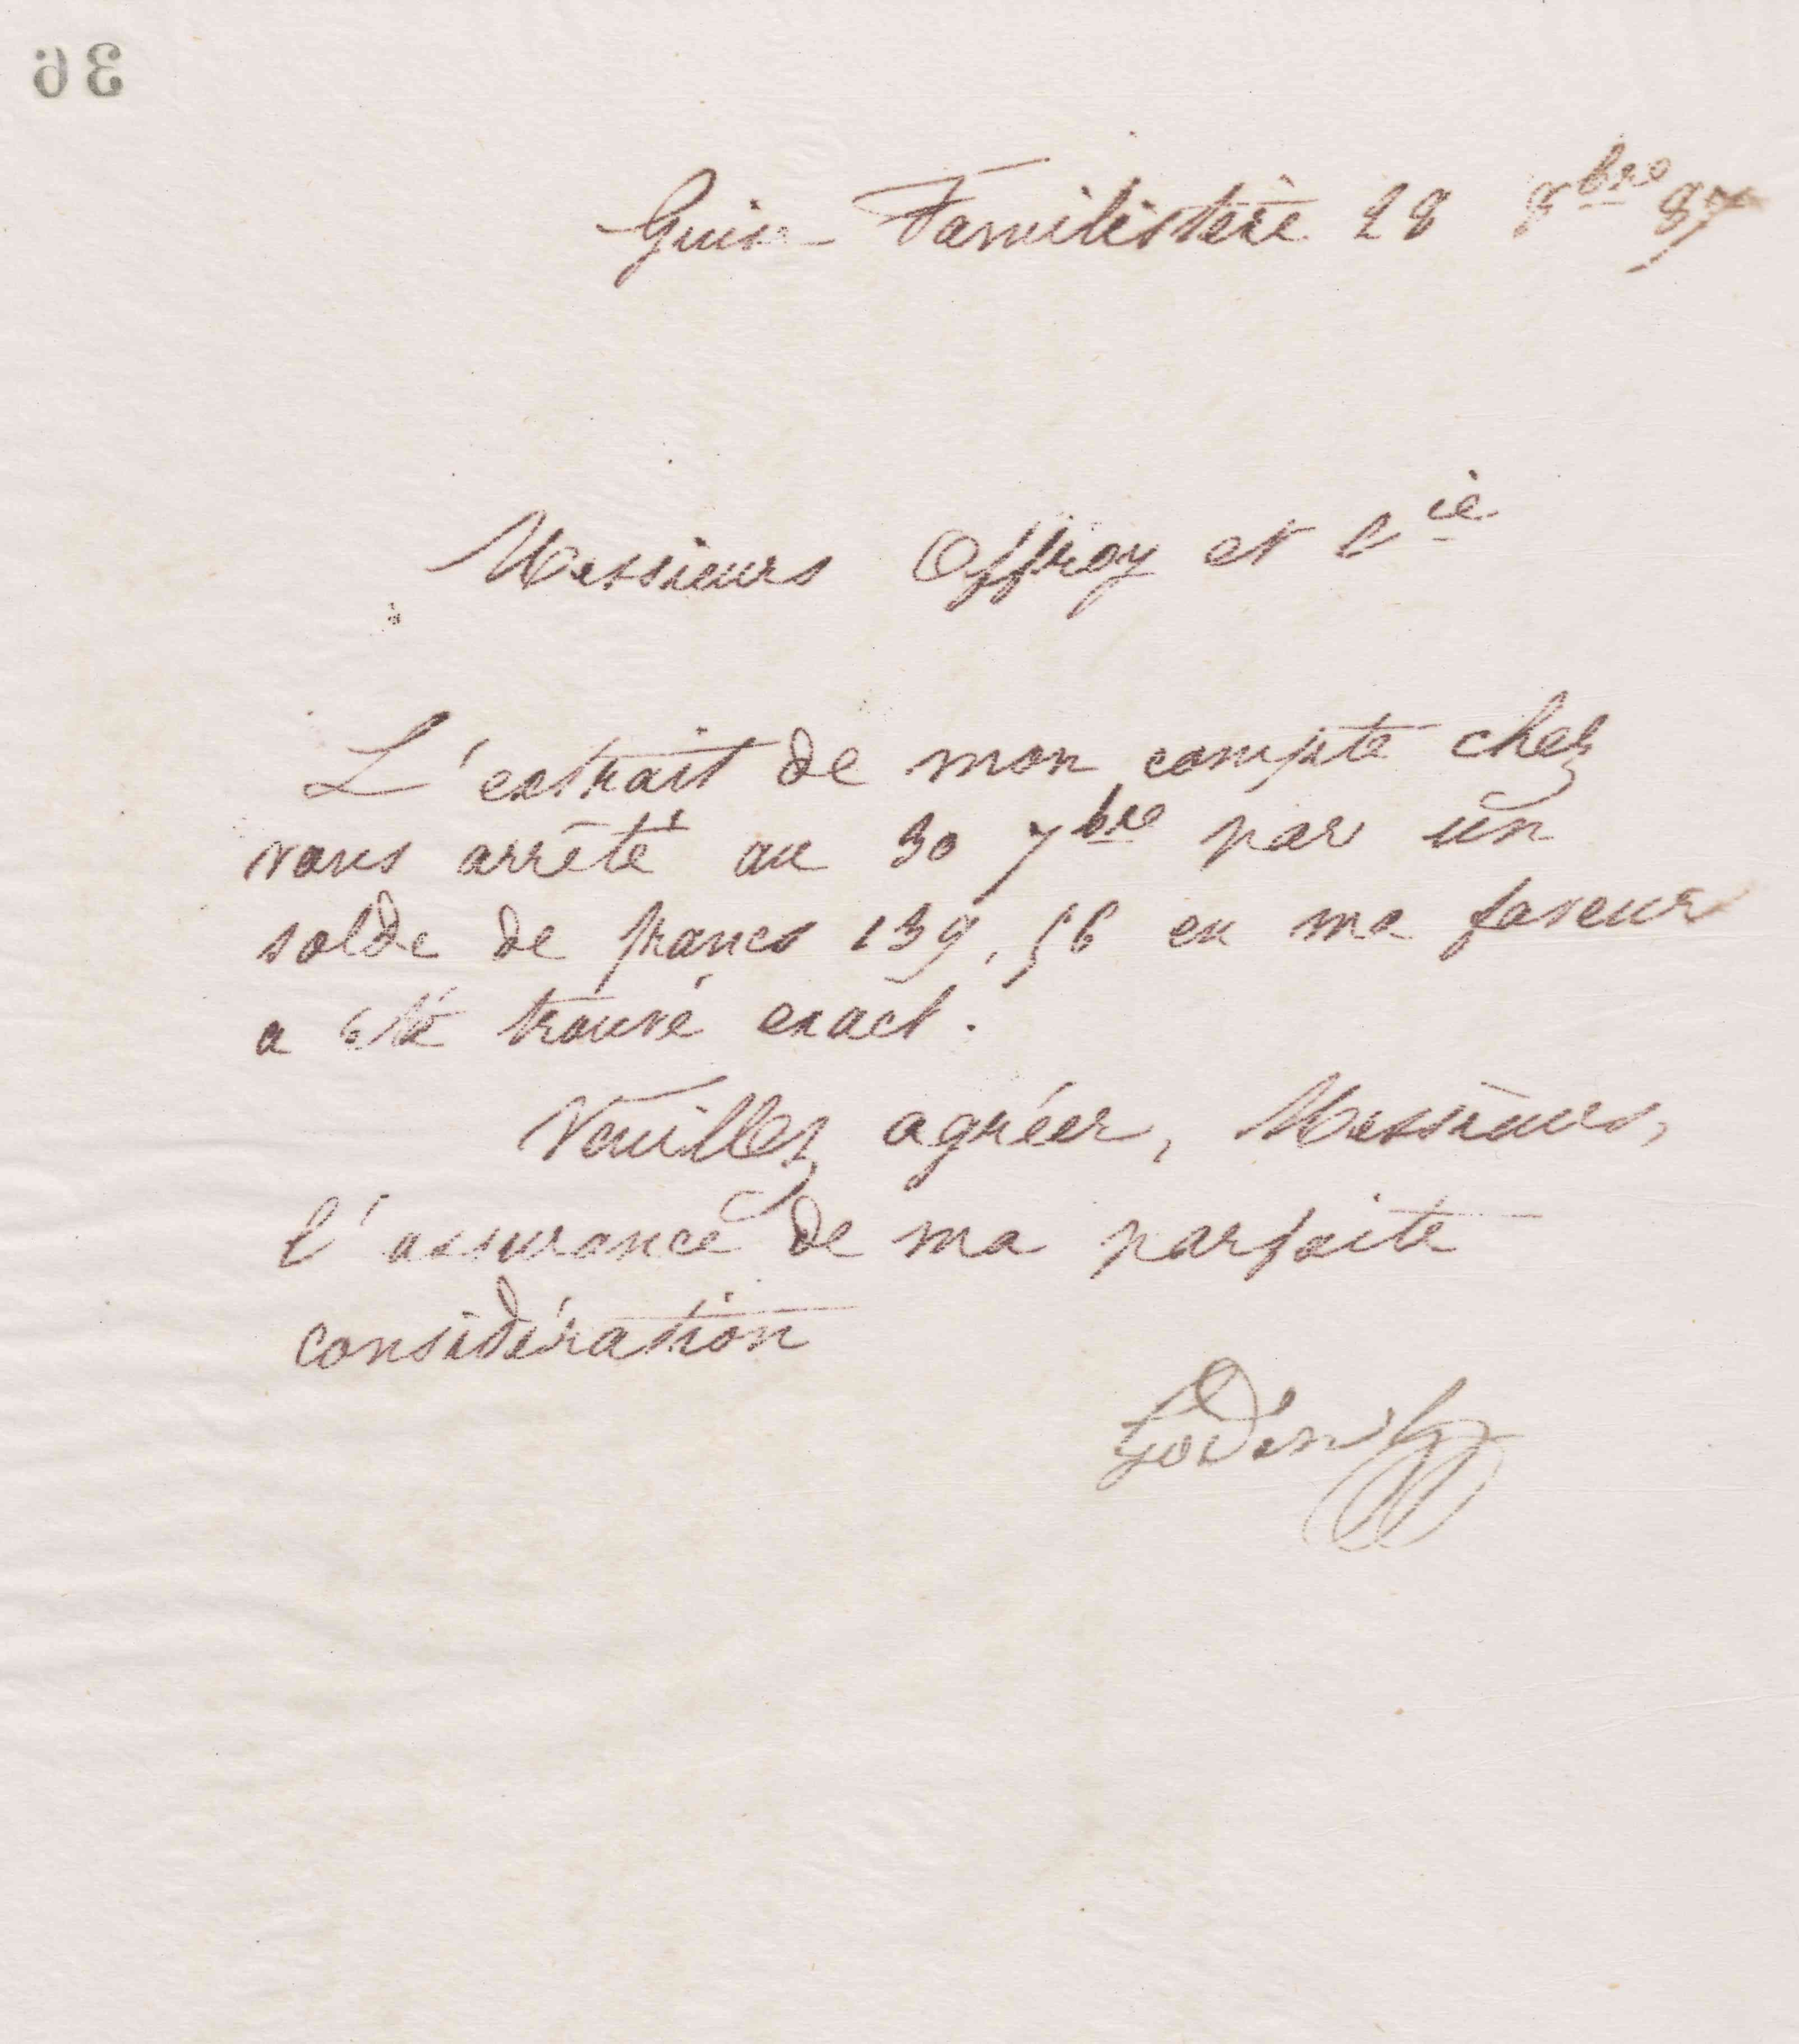 36
Guise Familistère 28 8bre 87
Messieurs Offroy et Cie
L'extrait de mon compte chez
vous arrêté au 30 7bre par un
solde de francs 139,56 en ma faveur
a été trouvé exact.
Veuillez agréer, Messieurs,
l'assurance de ma parfaite
considération
Godin